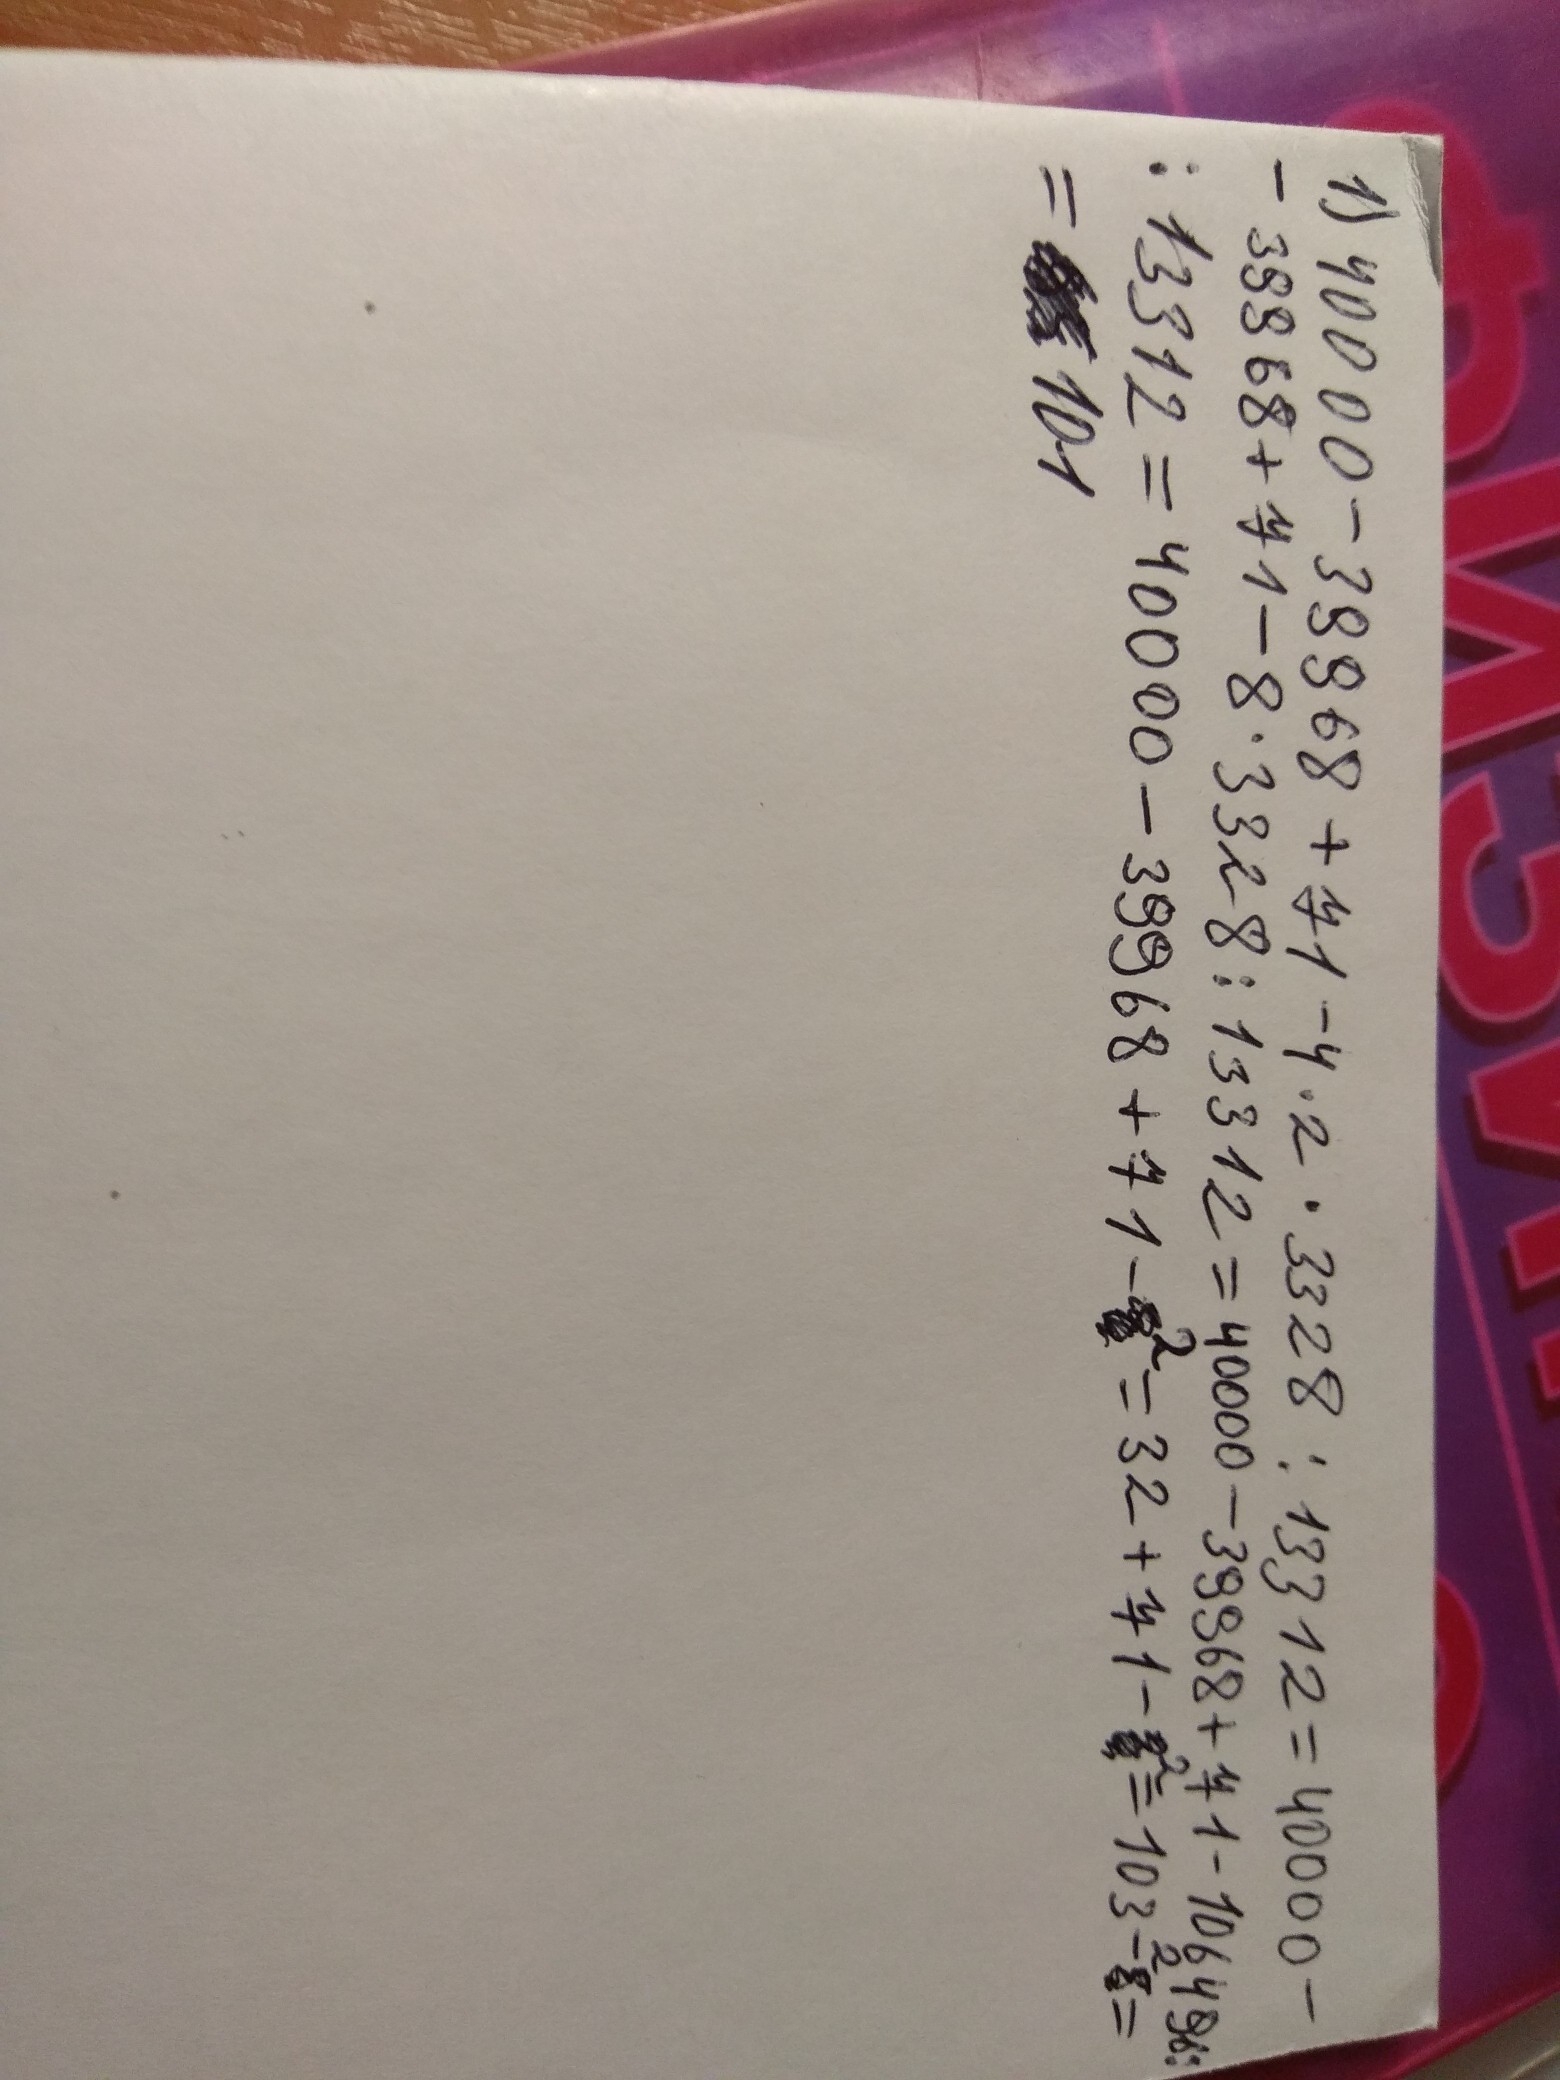 1) 40000-39968+71-4·2·3328:13312=40000-
-39968+71-8·3328:13312=40000-39968+71-106496:
:13312=40000-39968+71-2=32+71-2=103-2=
=101